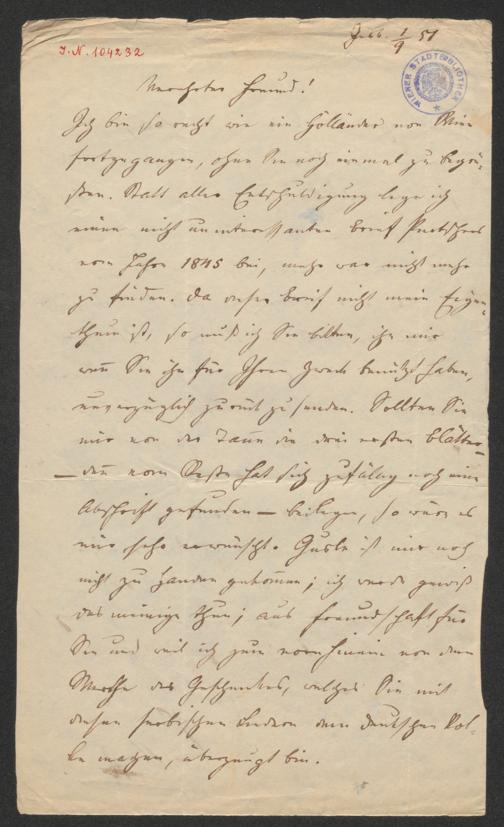 J.N. 104232
Feb. 1/9 51
WIENER STADTBIBLIOTHEK
Verehrter Freund!
Ich bin so recht wie ein Holländer von Wien
fortgegangen, ohne Sie noch einmal zu begrü-
ßen. Statt aller Entschuldigung lege ich
einen nicht uninteressanten Brief
vom Jahre 1845 bei, mehr war nicht mehr
zu finden. Da dieser Brief nicht mein Eigen-
thum ist, so muß ich Sie bitten, ihn mir
wenn Sie ihn für Ihren Zweck benützt haben,
unverzüglich zurück zu senden. Sollten Sie
mir von der die drei ersten Blätter
— den vom Reste hat sich zufällig noch eine
Abschrift gefunden — beilegen, so wäre es
mir sehr erwünscht. Gusle ist mir noch
nicht zu Handen gekommen; ich werde gewiß
das meinige thun; aus Freundschaft für
Sie und weil ich zum vornhinein von dem
Werthe des Geschenkes, welches Sie mit
diesen serbischen Liedern dem deutschen Vol-
ke machen, überzeugt bin.